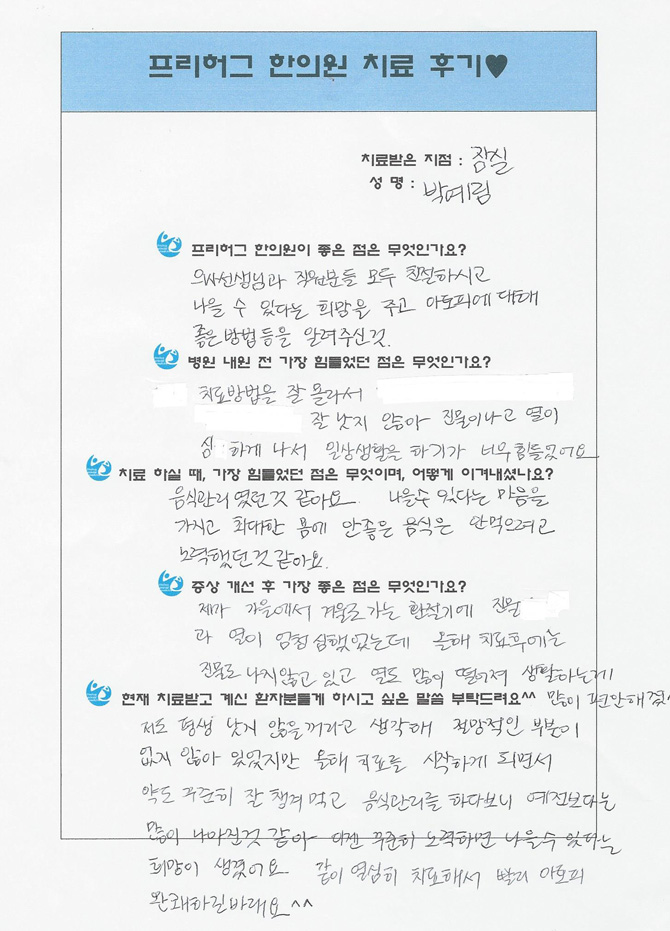 프리허그 한의원 치료 후기♥
치료받은 지점 : 잠실
성 명 : 박예림
프리허그 한의원이 좋은 점은 무엇인가요?
의사선생님과 직원분들 모두 친절하시고
나을 수 있다는 희망을 주고 아토피에 대해
좋은방법등을 알려주신것.
병원 내원 전 가장 힘들었던 점은 무엇인가요?
치료방법을 잘 몰라서
잘 낫지 않아 진물이나고 열이
심하게 나서 일상생활을 하기가 너무힘들었어요
치료 하실 때, 가장 힘들었던 점은 무엇이며, 어떻게 이겨내셨나요?
음식관리 였던것 같아요. 나을수 있다는 마음을
가지고 최대한 몸에 안좋은 음식은 안먹으려고
노력했던것 같아요.
증상 개선 후 가장 좋은 점은 무엇인가요?
제가 가을에서 겨울로가는 환절기에 진물
과 열이 엄청 심했었는데 올해 치료후에는
진물도 나지않고 있고 열도 많이 떨어져 생활하는게
많이 편안해졌
현재 치료받고 계신 환자분들게 하시고 싶은 말씀 부탁드려요^^
저도 평생 낫지 않을꺼라고 생각해 절망적인 부분이
없지 않아 있었지만 올해 치료를 시작하게 되면서
약도 꾸준히 잘 챙겨먹고 음식관리를 하다보니 예전보다는
많이 나아진것 같아 이젠 꾸준히 노력하면 나을수 있다는
희망이 생겼어요. 같이 열심히 치료해서 빨리 아토피
완쾌하길바래요^^